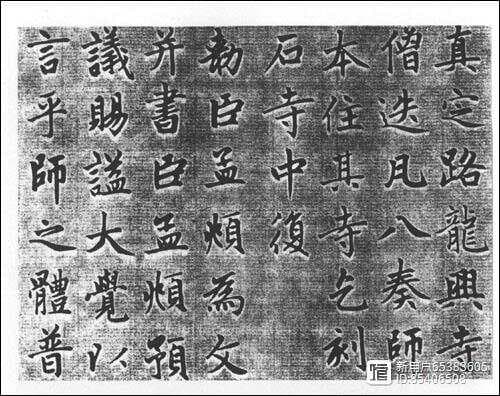 真定路龍興寺
僧迭凡八奏師
本住其寺乞刻
石寺中復
勅臣孟頫為文
并書臣孟頫預
議賜謚大覺以
言乎師之體普
新用户65383605
ID:35406308